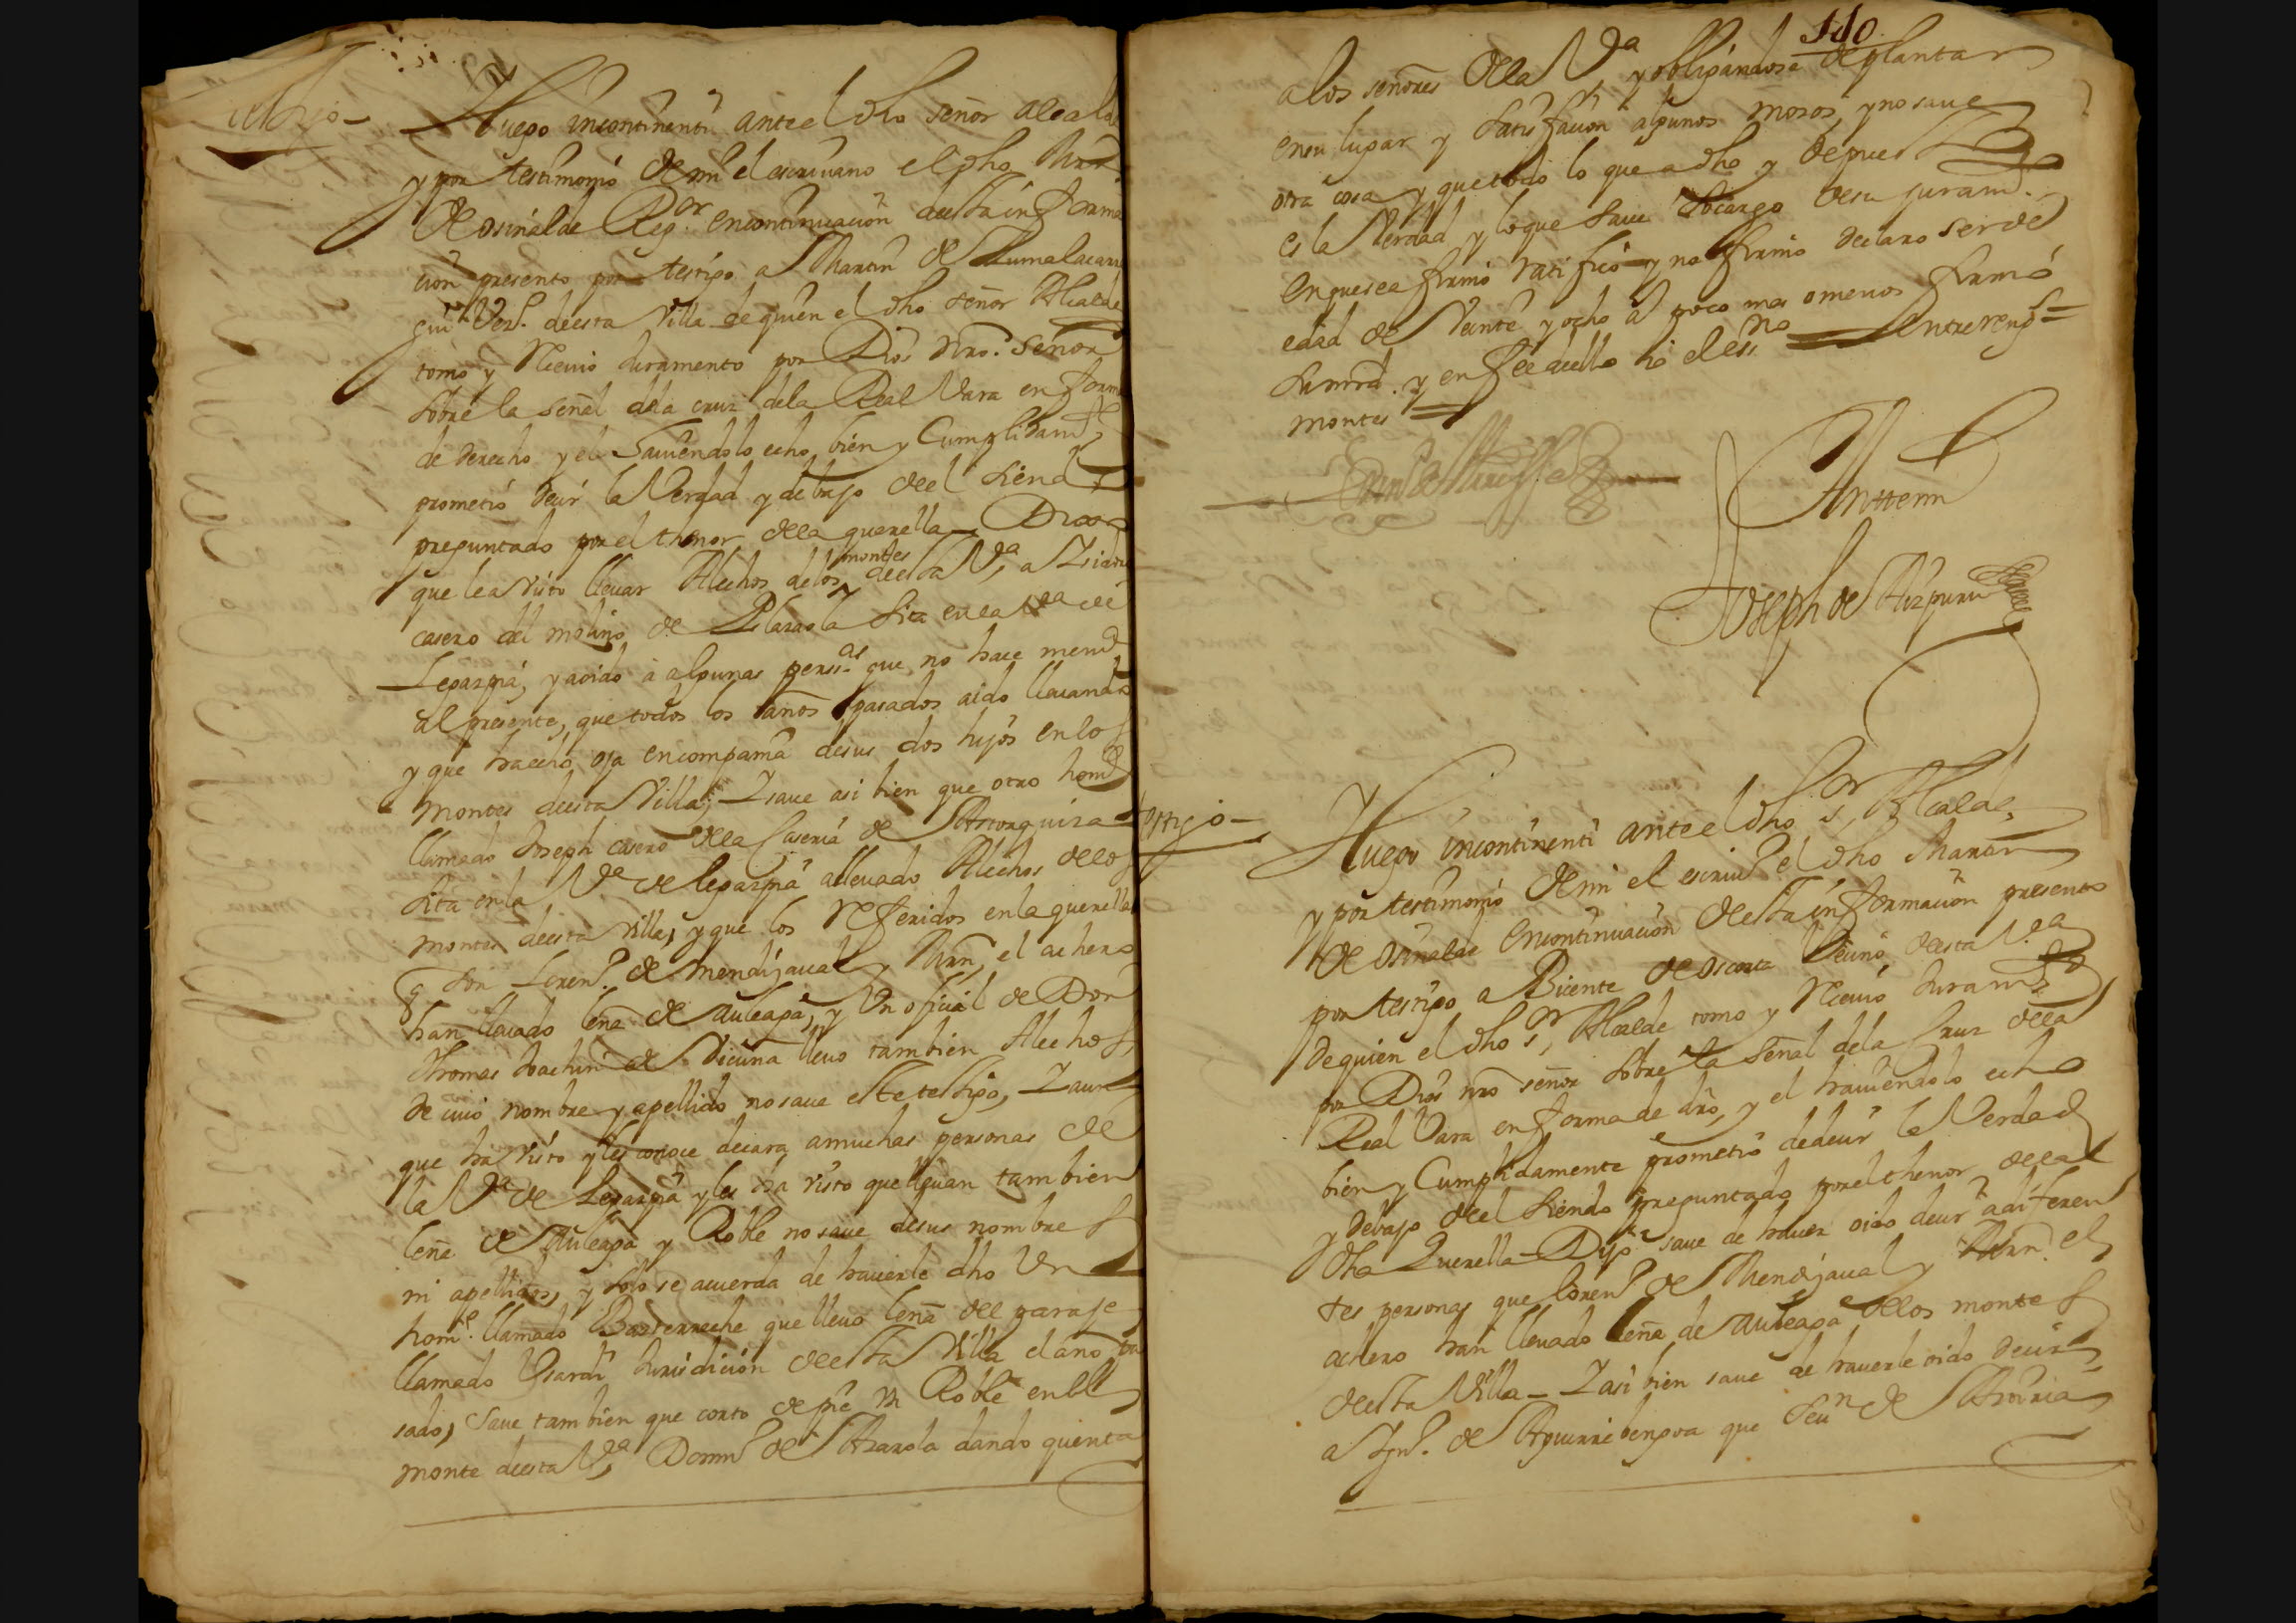 testigo –
Y luego incontinenti ante el dho señor alcalde
y por testimonio de mi el escriuano el dho Mrn
de osinalde Reg.or en continuacion de esta informa
cion presento por testigo a Martin de Zumalacarre
gui Vez.º de esta Villa de quien el dho señor Alcalde
tomo y Reciuio Juramento por Dios Nro. Señor
sobre la señal de la cruz de la Real Vara en forma
de derecho y el hauiendolo echo bien y Cumplidamte
prometio decir la Verdad y debajo de el siendo
preguntado por el thenor de la querella – Dixo
que le a visto lleuar Alechos de los montes de esta V.a a
casero del molino de Plazaola sita en la V.a de
Legazpia, y a oido a algunas perss.as que no hace menon
al presente, que todos los años pasados a ido lleuando
y que ha echo oja en compania de sus dos hijos en los
montes de esta Villa; Y saue asi bien que otro home
llamado Joseph casero de la Caseria de
sita en la V.a de legazpia a lleuado Alechos de los
montes de esta Villa, y que los Referidos en la querella
q son Loren.º de Mendizaual y Mrn, el achero
han lleuado leña de Auleaga, y Un oficial de Don
Thomas Joachin de Vicuña lleuo tambien Alechos,
de cuio nombre y apellido no saue este testigo, Y aun
que ha visto y les conoce de cara, a muchas personas de
la V.a de Legazpia y les ha visto que lleuan tambien
leña de Auleaga y Roble no saue de sus nombres
ni apellidos, y solo se acuerda de hauerle dho Un
hom.e llamado Basterreche que lleuo leña del paraje
llamado Jurisdicion de esta Villa el año pa
sado, Saue tambien que corto de pie Un Roble en el
monte de esta V.a Domn.º de Arzarola dando quenta
110.
a los señores de la V.a y obligandose de plantar
en su lugar y satisfacion algunos mosos, y no saue
otra cosa y que todo lo que a dho y depuesto
es la Verdad y lo que saue so cargo de su juramto.
en que se afirmo ratifico y no firmo declaro ser de
edad de Veinte y ocho as poco mas o menos firmó
su mrd. y en fee de ello yo el essno = Entrerengs =
montes =
Antemi
Joseph de Aizpuru
testigo –
Y luego incontinenti ante el dho S.or Alcalde,
y por testimonio de mi el escriuº el dho Martin
de osinalde en continuacion de esta informacion presento
por testigo a Bicente de oscorta Vecino de esta V.a
de quien el dho S.or Alcalde tomo y Reciuio Juramto
por Dios nro señor sobre la señal de la Cruz de la
Real Vara en forma de dro, y el hauiendolo echo
bien y Cumplidamente prometio de decir la Verdad
y debajo de el siendo preguntado por el thenor de la
dha Querella – Dijo saue de hauer oido decir a diferen
tes personas que loren.º de Mendizaual y Mrn. el
achero han lleuado leña de auleaga de los montes
de esta Villa – Y asi bien saue de hauerle oido decir
a Ygn.º de Aguirrebengoa que Seun de